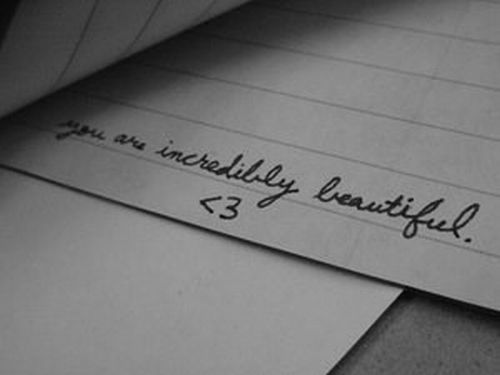 you are incredibly beautiful.
<3